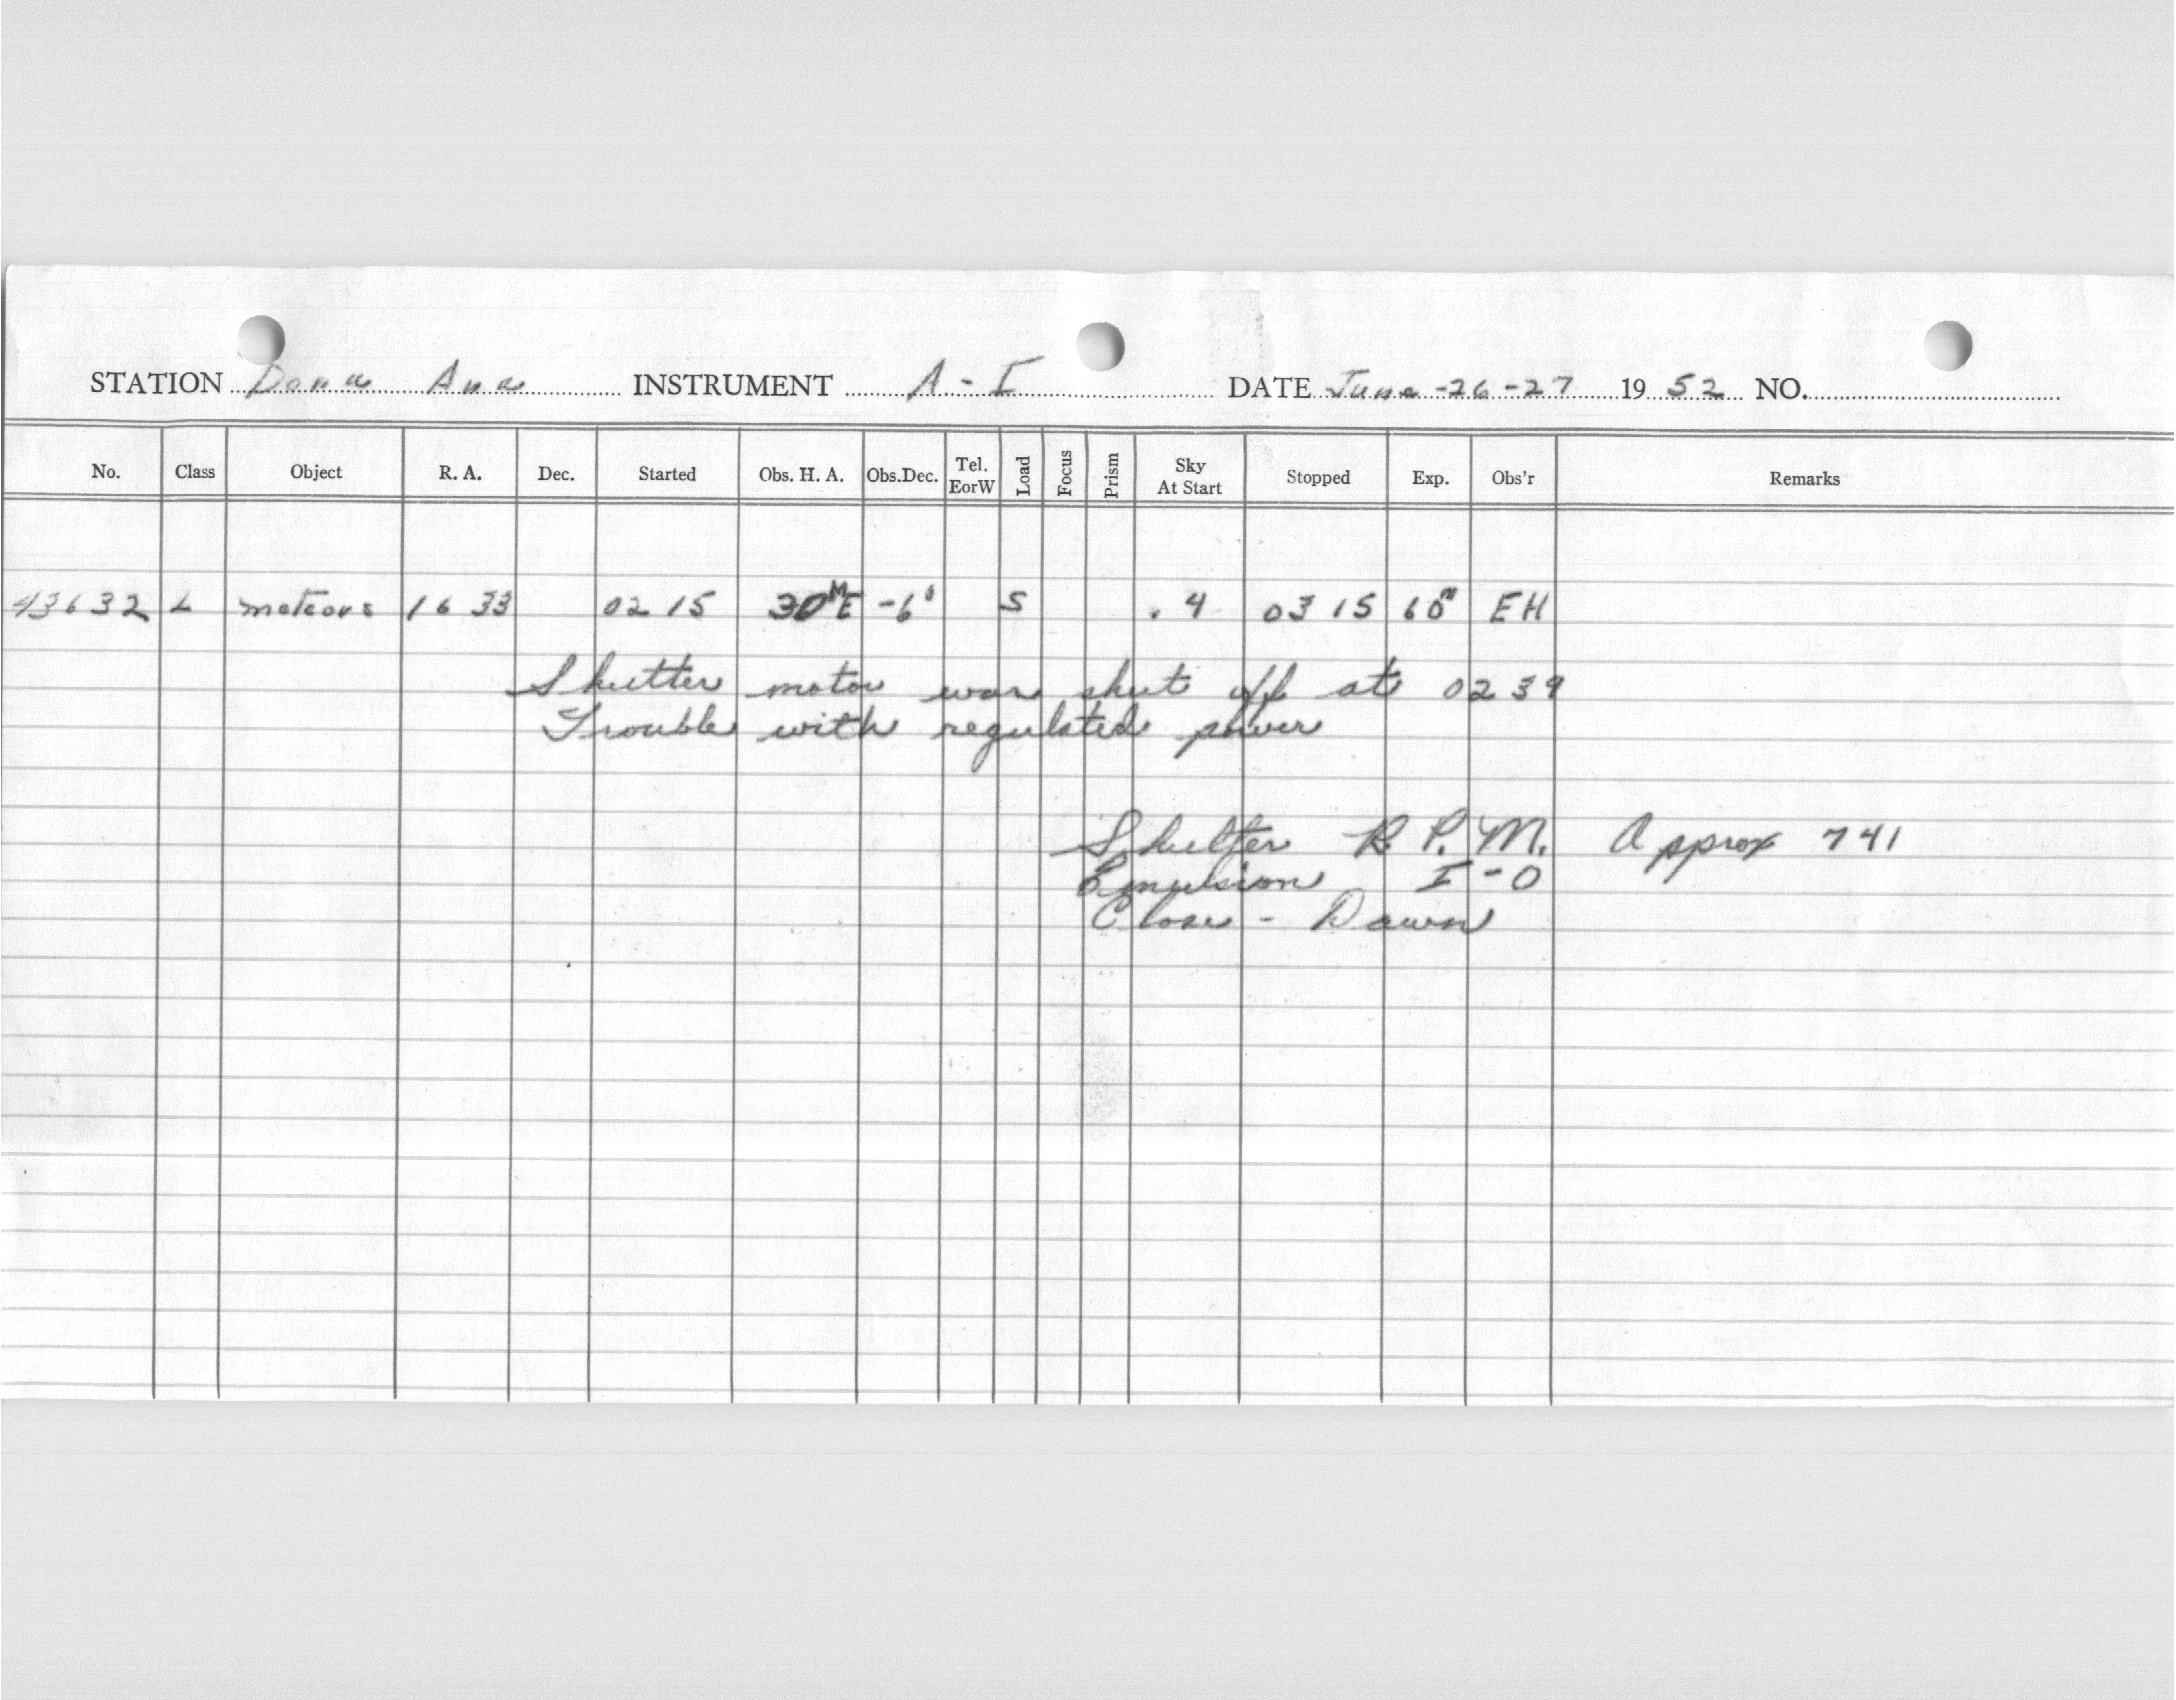 STATION Dona Ana INSTRUMENT A-I DATE June-26-27 1952 NO.
No. Class Object R. A. Dec. Started Obs. H. A. Obs.Dec. Tel. EorW Load Focus Prism Sky At Start Stopped Exp. Obs'r Remarks
43632 L meteors 16 33 02 15 30ᴹE -6° S .4 03 15 60ᴹ EH
Shutter motor was shut off at 0239
Trouble with regulated power
Shutter R.P.M. Approx 741
Emulsion I-O
Close - Dawn